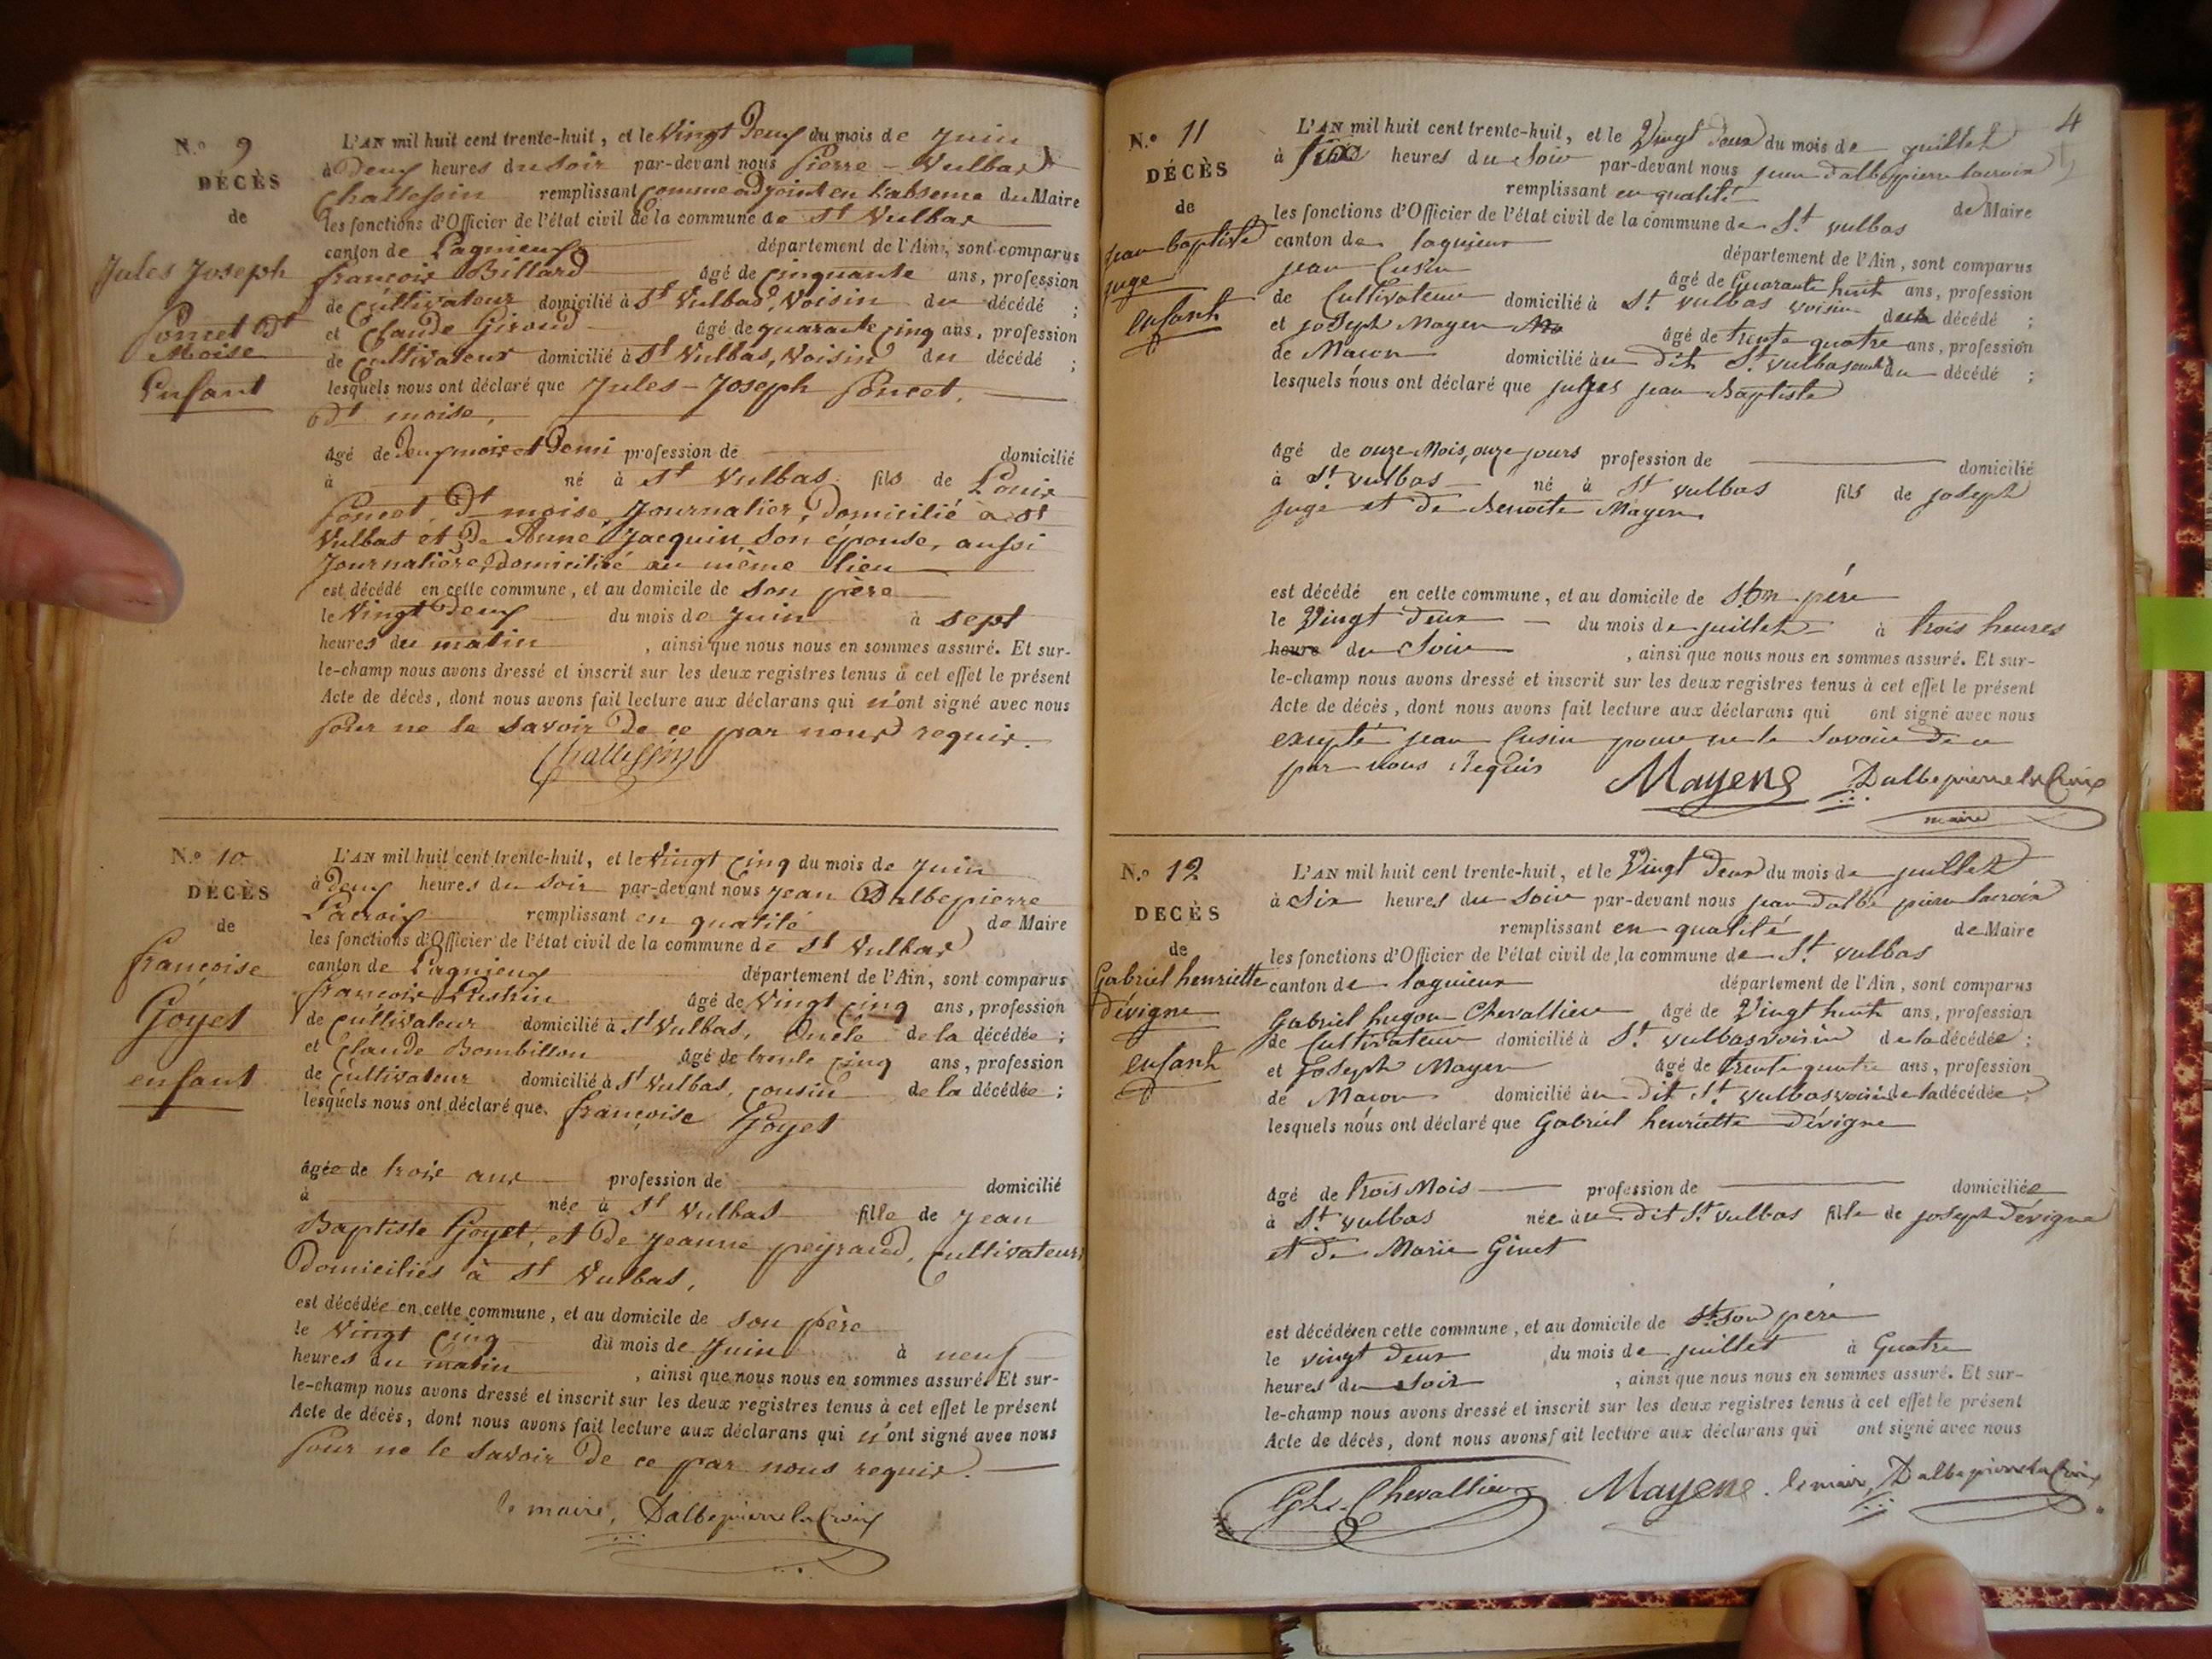 N.o 9
DÉCÈS
de
Jules Joseph
Poncet dt
Moise
Enfant
L'AN mil huit cent trente-huit, et le Vingt Deux du mois de Juin
à Deux heures du soir par-devant nous Pierre - Vulbas
Challessin remplissant comme adjoint en l'absence du Maire
les fonctions d'Officier de l'état civil de la commune de St Vulbas
canton de Lagnieux département de l'Ain, sont comparus
françois Billard âgé de Cinquante ans, profession
de Cultivateur domicilié à St Vulbas, Voisin du décédé ;
et Claude Giroud âgé de quarante cinq ans, profession
de Cultivateur domicilié à St Vulbas, Voisin du décédé ;
lesquels nous ont déclaré que Jules - Joseph Poncet,
dt moise,
âgé de Deux mois et Demi profession de domicilié
à né à St Vulbas fils de Louis
Poncet, dt moise, Journalier, Domicilié à St
Vulbas et De Anne Jacquin son épouse, aussi
Journalière, domicilié au même lieu
est décédé en cette commune, et au domicile de son père
le Vingt Deux du mois de Juin à sept
heures du matin , ainsi que nous nous en sommes assuré. Et sur-
le-champ nous avons dressé et inscrit sur les deux registres tenus à cet effet le présent
Acte de décès, dont nous avons fait lecture aux déclarans qui n'ont signé avec nous
Pour ne le savoir De ce par nous requis.
Challessin
N.o 10
DÉCÈS
de
françoise
Goyet
enfant
L'AN mil huit cent trente-huit, et le Vingt Cinq du mois de Juin
à Deux heures du soir par-devant nous Jean Dalbepierre
Lacroix remplissant en qualité de Maire
les fonctions d'Officier de l'état civil de la commune de St Vulbas
canton de Lagnieux département de l'Ain, sont comparus
françois âgé de Vingt cinq ans, profession
de Cultivateur domicilié à St Vulbas, Oncle de la décédée ;
et Claude Bombillon âgé de trente cinq ans, profession
de Cultivateur domicilié à St Vulbas, cousin de la décédée ;
lesquels nous ont déclaré que françoise Goyet
âgée de trois ans profession de domicilié
à née à St Vulbas fille de Jean
Baptiste Goyet, et De Jeanne peyraud, Cultivateurs
Domiciliés à St Vulbas,
est décédée en cette commune, et au domicile de son père
le Vingt Cinq du mois de Juin à neuf
heures du matin , ainsi que nous nous en sommes assuré. Et sur-
le-champ nous avons dressé et inscrit sur les deux registres tenus à cet effet le présent
Acte de décès, dont nous avons fait lecture aux déclarans qui n'ont signé avec nous
Pour ne le savoir De ce par nous requis.
le maire, Dalbepierre laCroix
4
N.o 11
DÉCÈS
de
jean baptiste
juge
enfant
L'AN mil huit cent trente-huit, et le Vingt deux du mois de juillet
à heures du Soir par-devant nous jean dalbepierre lacroix
remplissant en qualité de Maire
les fonctions d'Officier de l'état civil de la commune de St. vulbas
canton de lagnieux département de l'Ain, sont comparus
jean Cusin âgé de Quarante huit ans, profession
de Cultivateur domicilié à St. vulbas voisin du décédé ;
et joseph Mayen âgé de trente quatre ans, profession
de Macon domicilié au dit St. vulbas du décédé ;
lesquels nous ont déclaré que jean Baptiste
âgé de onze Mois, onze jours profession de domicilié
à St. vulbas né à St vulbas fils de joseph
juge et De Benoite Mayen
est décédé en cette commune, et au domicile de son père
le Vingt deux du mois de juillet à trois heures
heure du Soir , ainsi que nous nous en sommes assuré. Et sur-
le-champ nous avons dressé et inscrit sur les deux registres tenus à cet effet le présent
Acte de décès, dont nous avons fait lecture aux déclarans qui ont signé avec nous
excepté jean Cusin pour ne le Savoir de ce
par nous Requis Mayene Dalbepierre laCroix
maire
N.o 12
DECÈS
de
Gabriel henriette
dévigne
enfant
L'AN mil huit cent trente-huit, et le Vingt deux du mois de juillet
à Six heures du Soir par-devant nous jean dalbe pierre lacroix
remplissant en qualité de Maire
les fonctions d'Officier de l'état civil de la commune de St. vulbas
canton de lagnieux département de l'Ain, sont comparus
Gabriel hugon Chevallier âgé de Vingt huit ans, profession
de Cultivateur domicilié à St. vulbas voisin de la décédée ;
et joseph Mayen âgé de trente quatre ans, profession
de Macon domicilié au dit St. vulbas voisin de la décédée ;
lesquels nous ont déclaré que Gabriel henriette dévigne
âgé de trois Mois profession de domiciliée
à St. vulbas née au dit St. vulbas fille de joseph dévigne
et de Marie Ginet
est décédée en cette commune, et au domicile de son père
le vingt deux du mois de juillet à Quatre
heures du Soir , ainsi que nous nous en sommes assuré. Et sur-
le-champ nous avons dressé et inscrit sur les deux registres tenus à cet effet le présent
Acte de décès, dont nous avons fait lecture aux déclarans qui ont signé avec nous
Gh. Chevallier Mayene. le maire, Dalbepierre laCroix